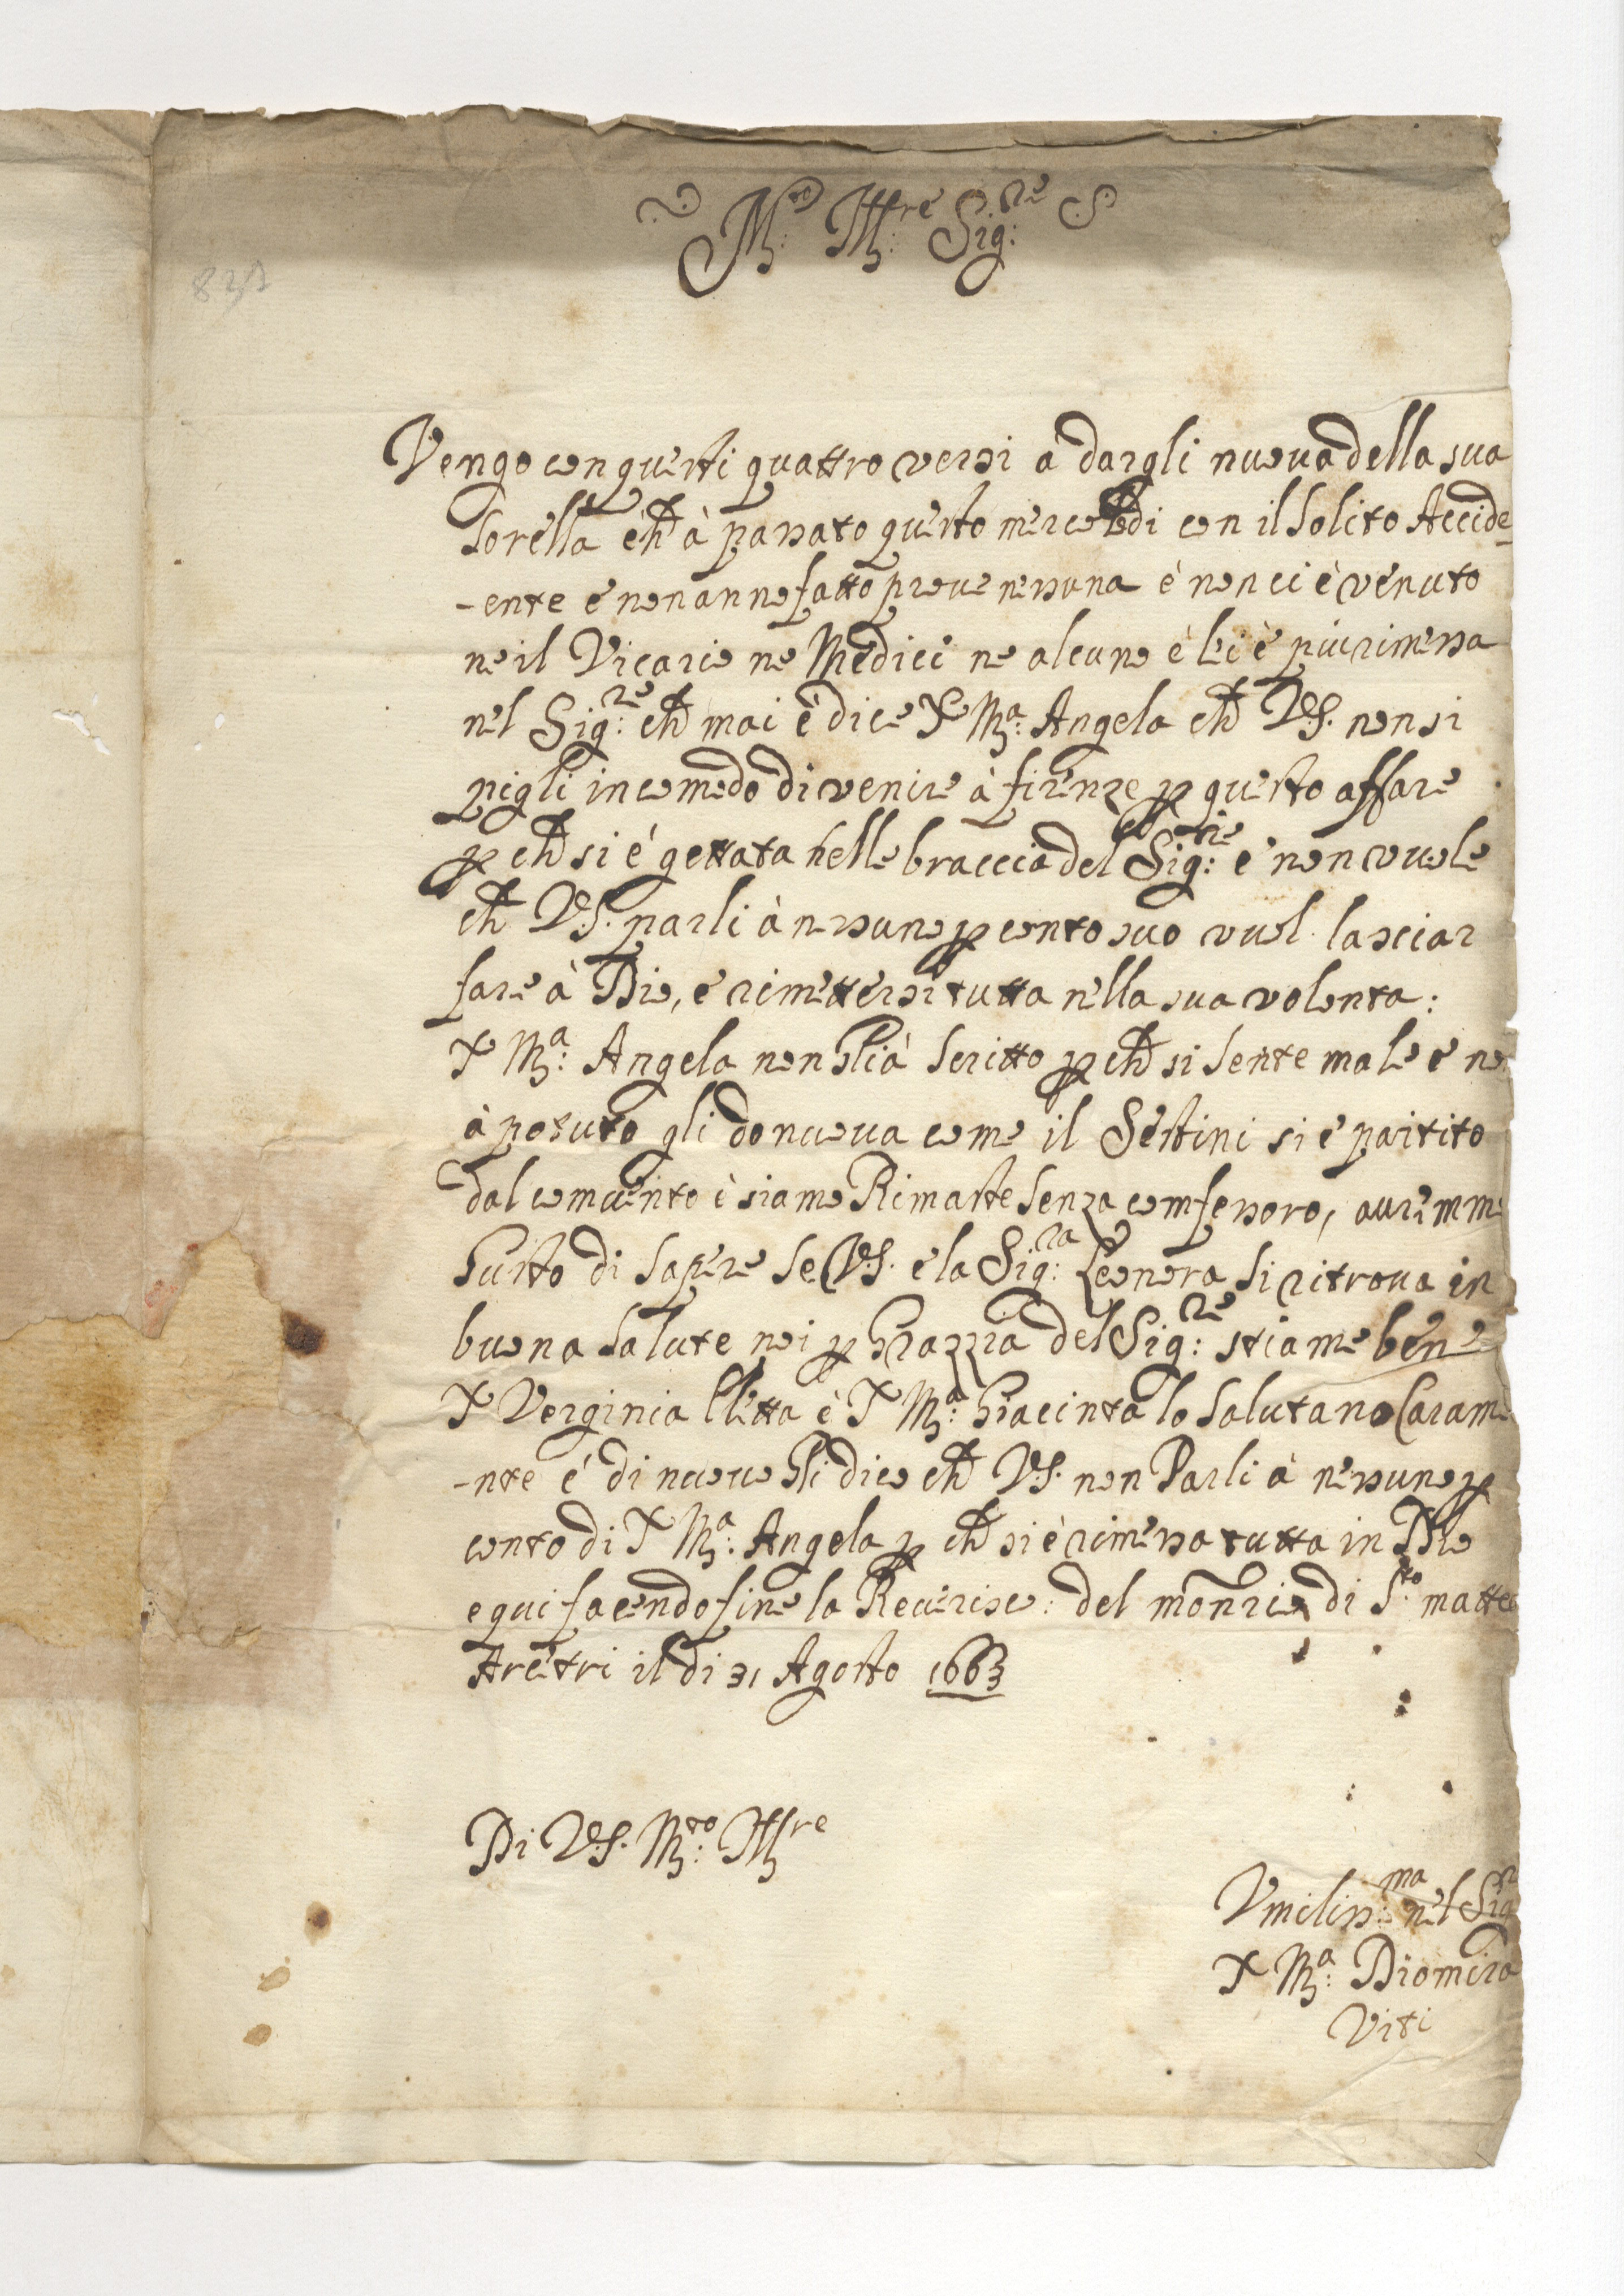 M.to Ill.re Sig.re
Vengo con questi quattro versi à dargli nuova della sua
sorella ch à passato questo mercoledi con il solito Accide
-ente e non anno fatto prove nessuna è non ci è venuto
ne il Vicario ne Medici ne alcuno è lei è piu rimessa
nel Sig:re ch mai è dice S M:a Angela ch V.S. non si
pigli incomodo di venire à firenze p questo affare
p ch si è gettata nelle braccia del Sig:re e non vuole
ch V.S. parli à nessuno p conto suo vuol lasciar
fare à Dio, e rimettersi tutta nella sua volonta:
S M:a Angela non gli à scritto p ch si sente male e no
à potuto gli do nuova come il Sestini si è partito
dal comvento è siamo Rimaste senza comfessoro, auremmo
Gusto di sapere se V.S. e la Sig:ra Leonora si ritrova in
buona salute noi p Grazzia del Sig:re stiamo bene
S Verginia è S M:a Giacinta lo salutano Carame
-nte é di nuovo Gli dico ch V.S. non Parli à nessuno p
conto di S M:a Angela p ch si è rimessa tutta in Dio
e qui facendo fine la Reverisco: del monrio di S.to matteo
Arcetri il di 31 Agosto 1663
Di V.S. M:to Ill.re
Vmiliss:ma nel Sig
S M:a Diomira
Viti